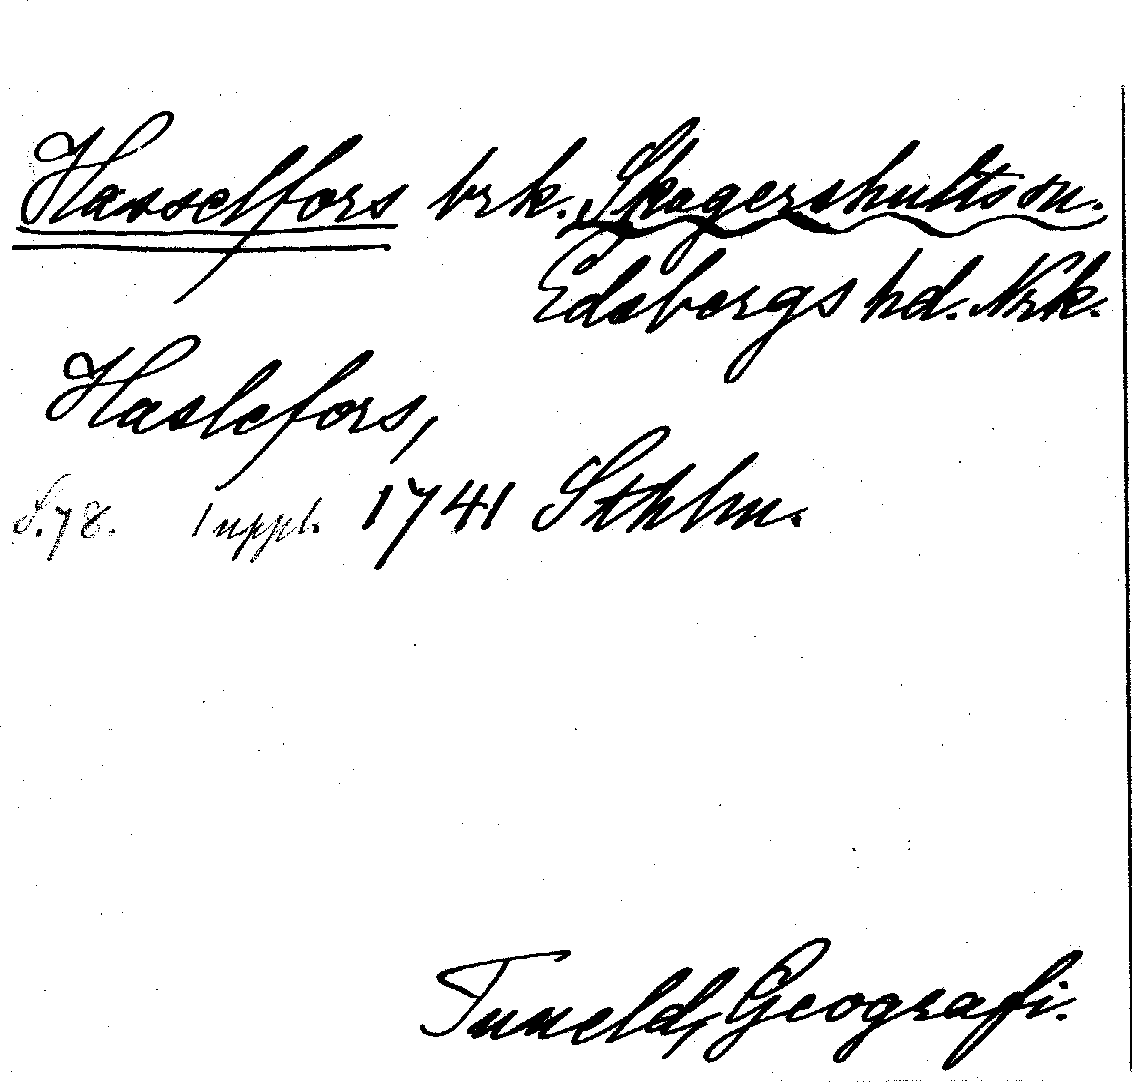 Hasselfors brk. Skagershults sn.
Edsbergs hd. Nrk.
Haslefors,
S. 78. 1 uppl. 1741 Sthlm.
Tuneld, Geografi.